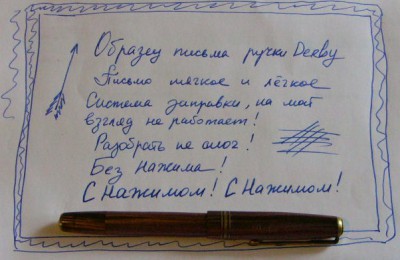 Образец письма ручки Derby
Письмо мягкое и лёгкое
Система заправки, на мой
взгляд не работает!
Разобрать не смог!
Без Нажима!
С Нажимом! С Нажимом!